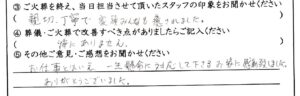 ③ご火葬を終え、当日担当させて頂いたスタッフの印象をお聞かせください
親切、丁寧で家族みんなも癒されました。
④葬儀・ご火葬で改善すべき点がありましたらご記入ください
特にありません。
⑤その他ご意見・ご感想をお聞かせください
お仕事とはいえ、一生懸命に対応して下さるお姿に感動致しました。
ありがとうございました。